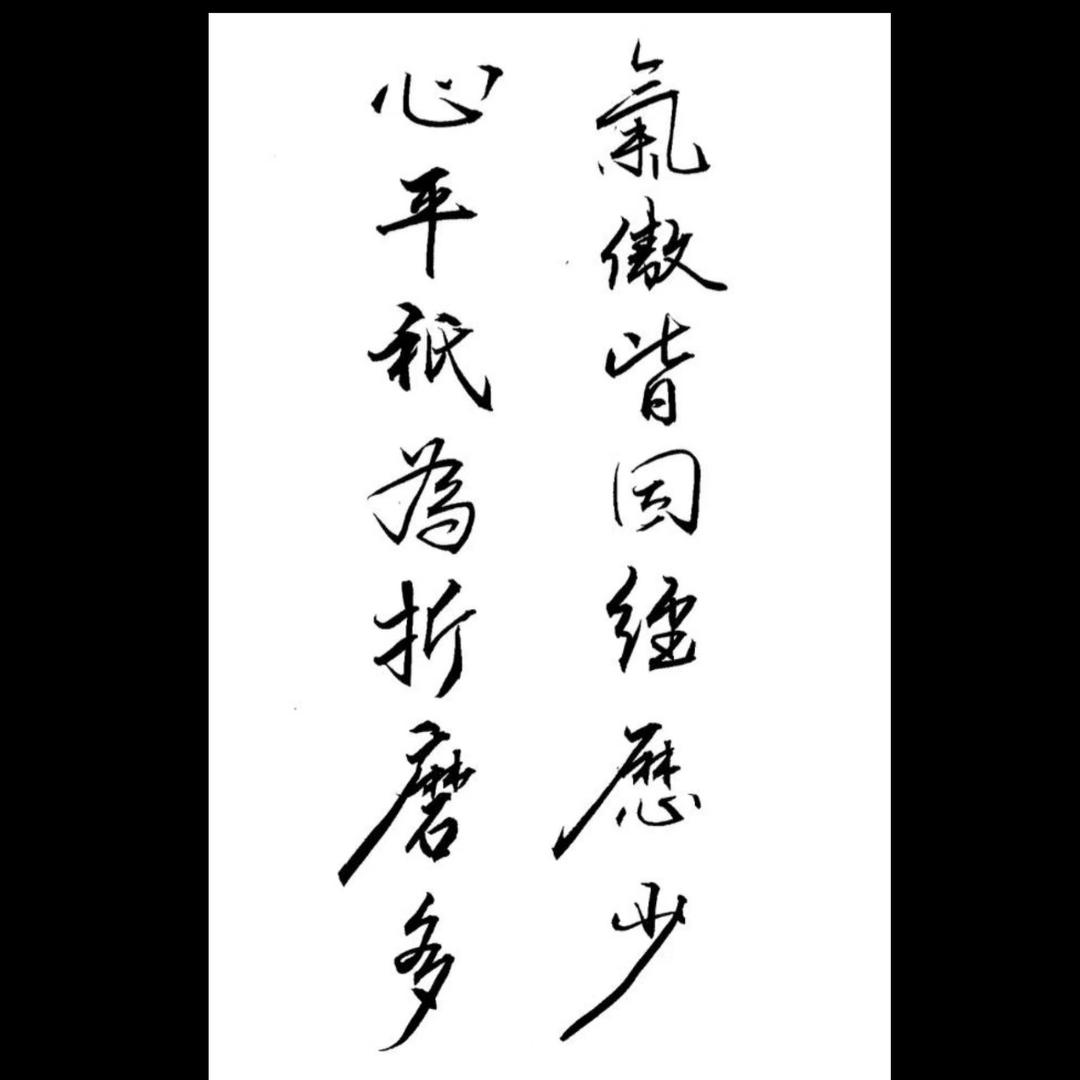 氣傲皆因經歷少
心平祇為折磨多